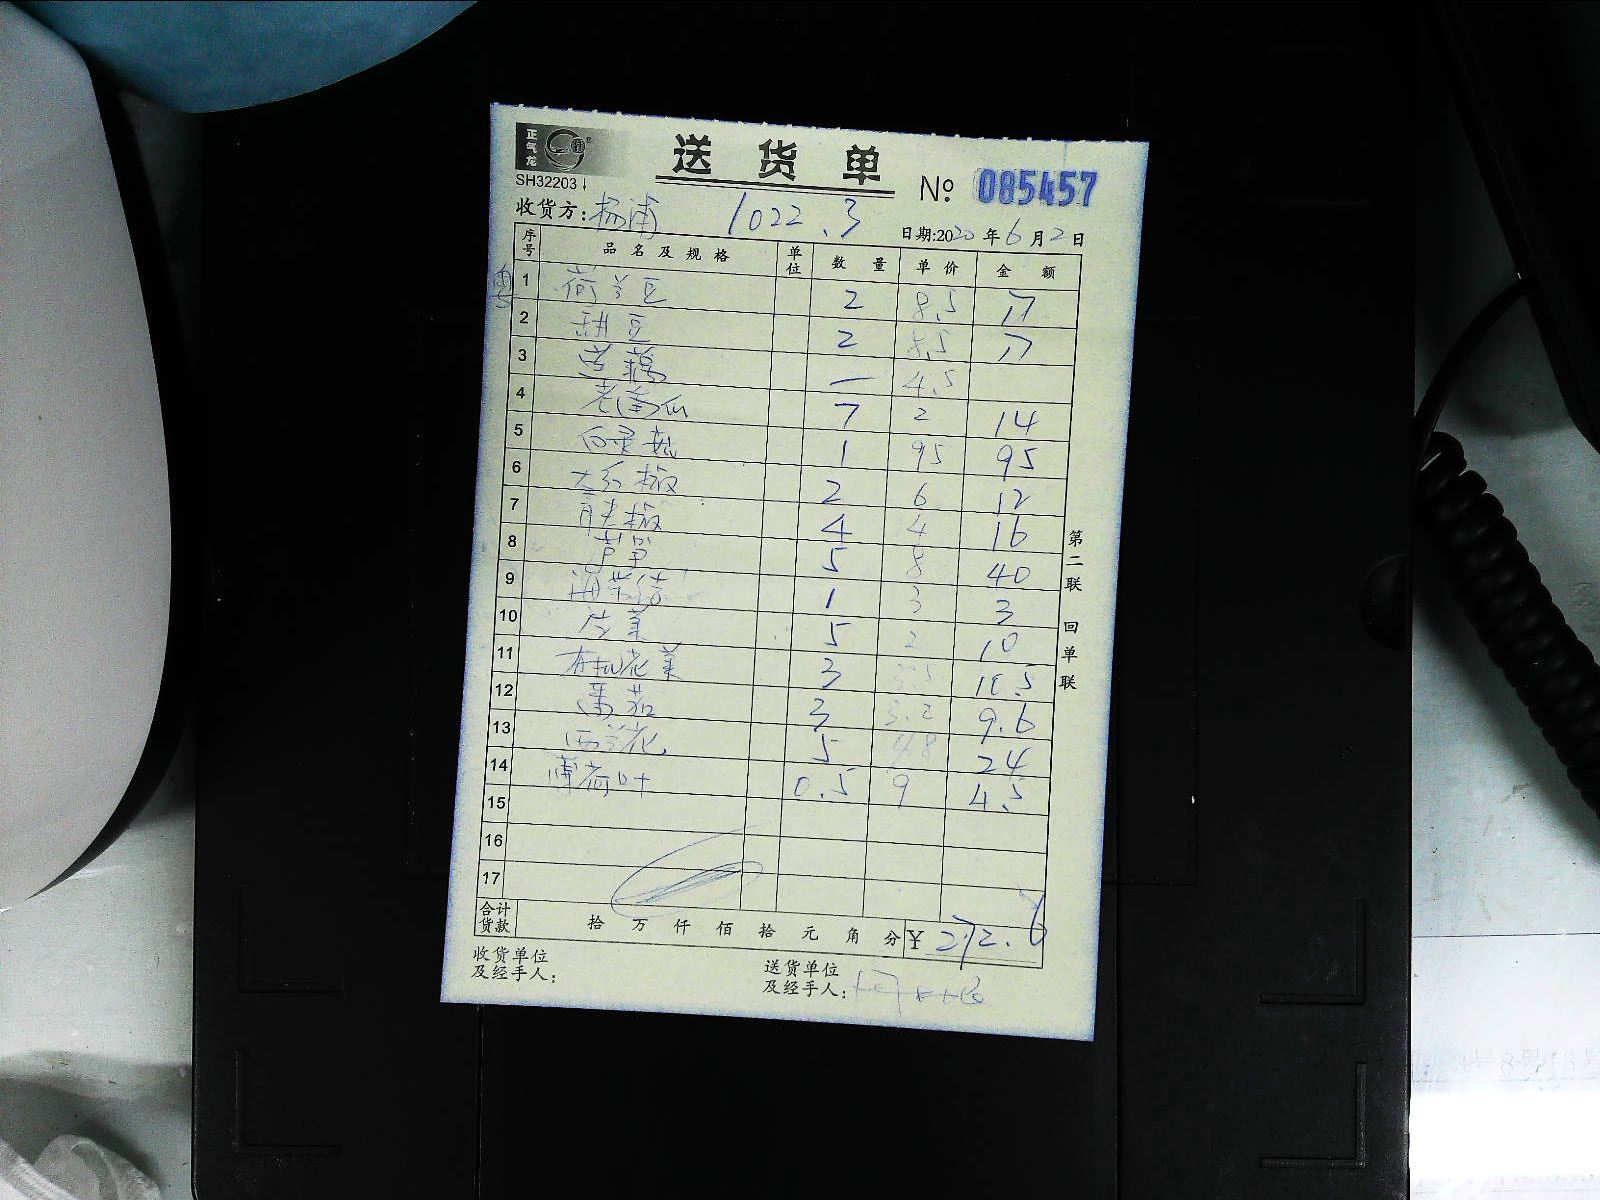 正气龙
送货单
SH32203
№ 085457
收货方: 杨浦 1022.3
日期:2020年6月2日
序号 品名及规格 单位 数量 单价 金额
1 荷兰豆 2 8.5 17
2 甜豆 2 8.5 17
3 一 4.5
4 老南瓜 7 2 14
5 白灵菇 1 95 95
6 大红椒 2 6 12
7 青尖椒 4 4 16
8 芦笋 5 8 40
9 海带结 1 3 3
10 生菜 5 2 10
11 有机花菜 3 3.5 10.5
12 番茄 3 3.2 9.6
13 西兰花 5 4.8 24
14 薄荷叶 0.5 9 4.5
15
16
17
合计货款 拾万仟佰拾元角分 ¥ 272.6
收货单位及经手人:
送货单位及经手人:
第二联 回单联